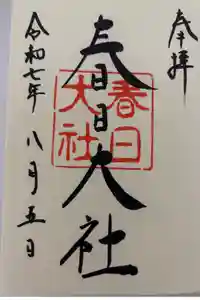 奉拝
春日大社
春日
大社
令和七年 八月五日